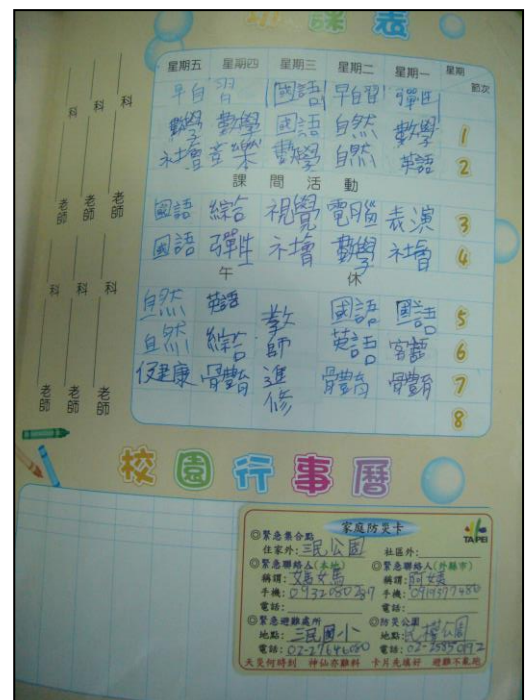 功課表
星期五 星期四 星期三 星期二 星期一 星期 節次
早自習 國語 早自習 彈性
數學 數學 國語 自然 數學 1
社會 音樂 數學 自然 英語 2
課間活動
國語 綜合 視覺 電腦 表演 3
國語 彈性 社會 數學 社會 4
午休
自然 英語 國語 國語 5
自然 綜合 英語 6
健康 體育 體育 體育 7
教師進修
8
科 老師
科 老師
科 老師
科 老師
科 老師
科 老師
校園行事曆
家庭防災卡
TAIPEI
◎緊急集合點
住家外:三民公園 社區外:
◎緊急聯絡人(本地) ◎緊急聯絡人(外縣市)
稱謂:媽媽 稱謂:阿姨
手機: 手機:
電話: 電話:
◎緊急避難處所 ◎防災公園
地點:三民國小 地點:公園
電話: 電話:
天災何時到 神仙亦難料 卡片先填好 避難不亂跑